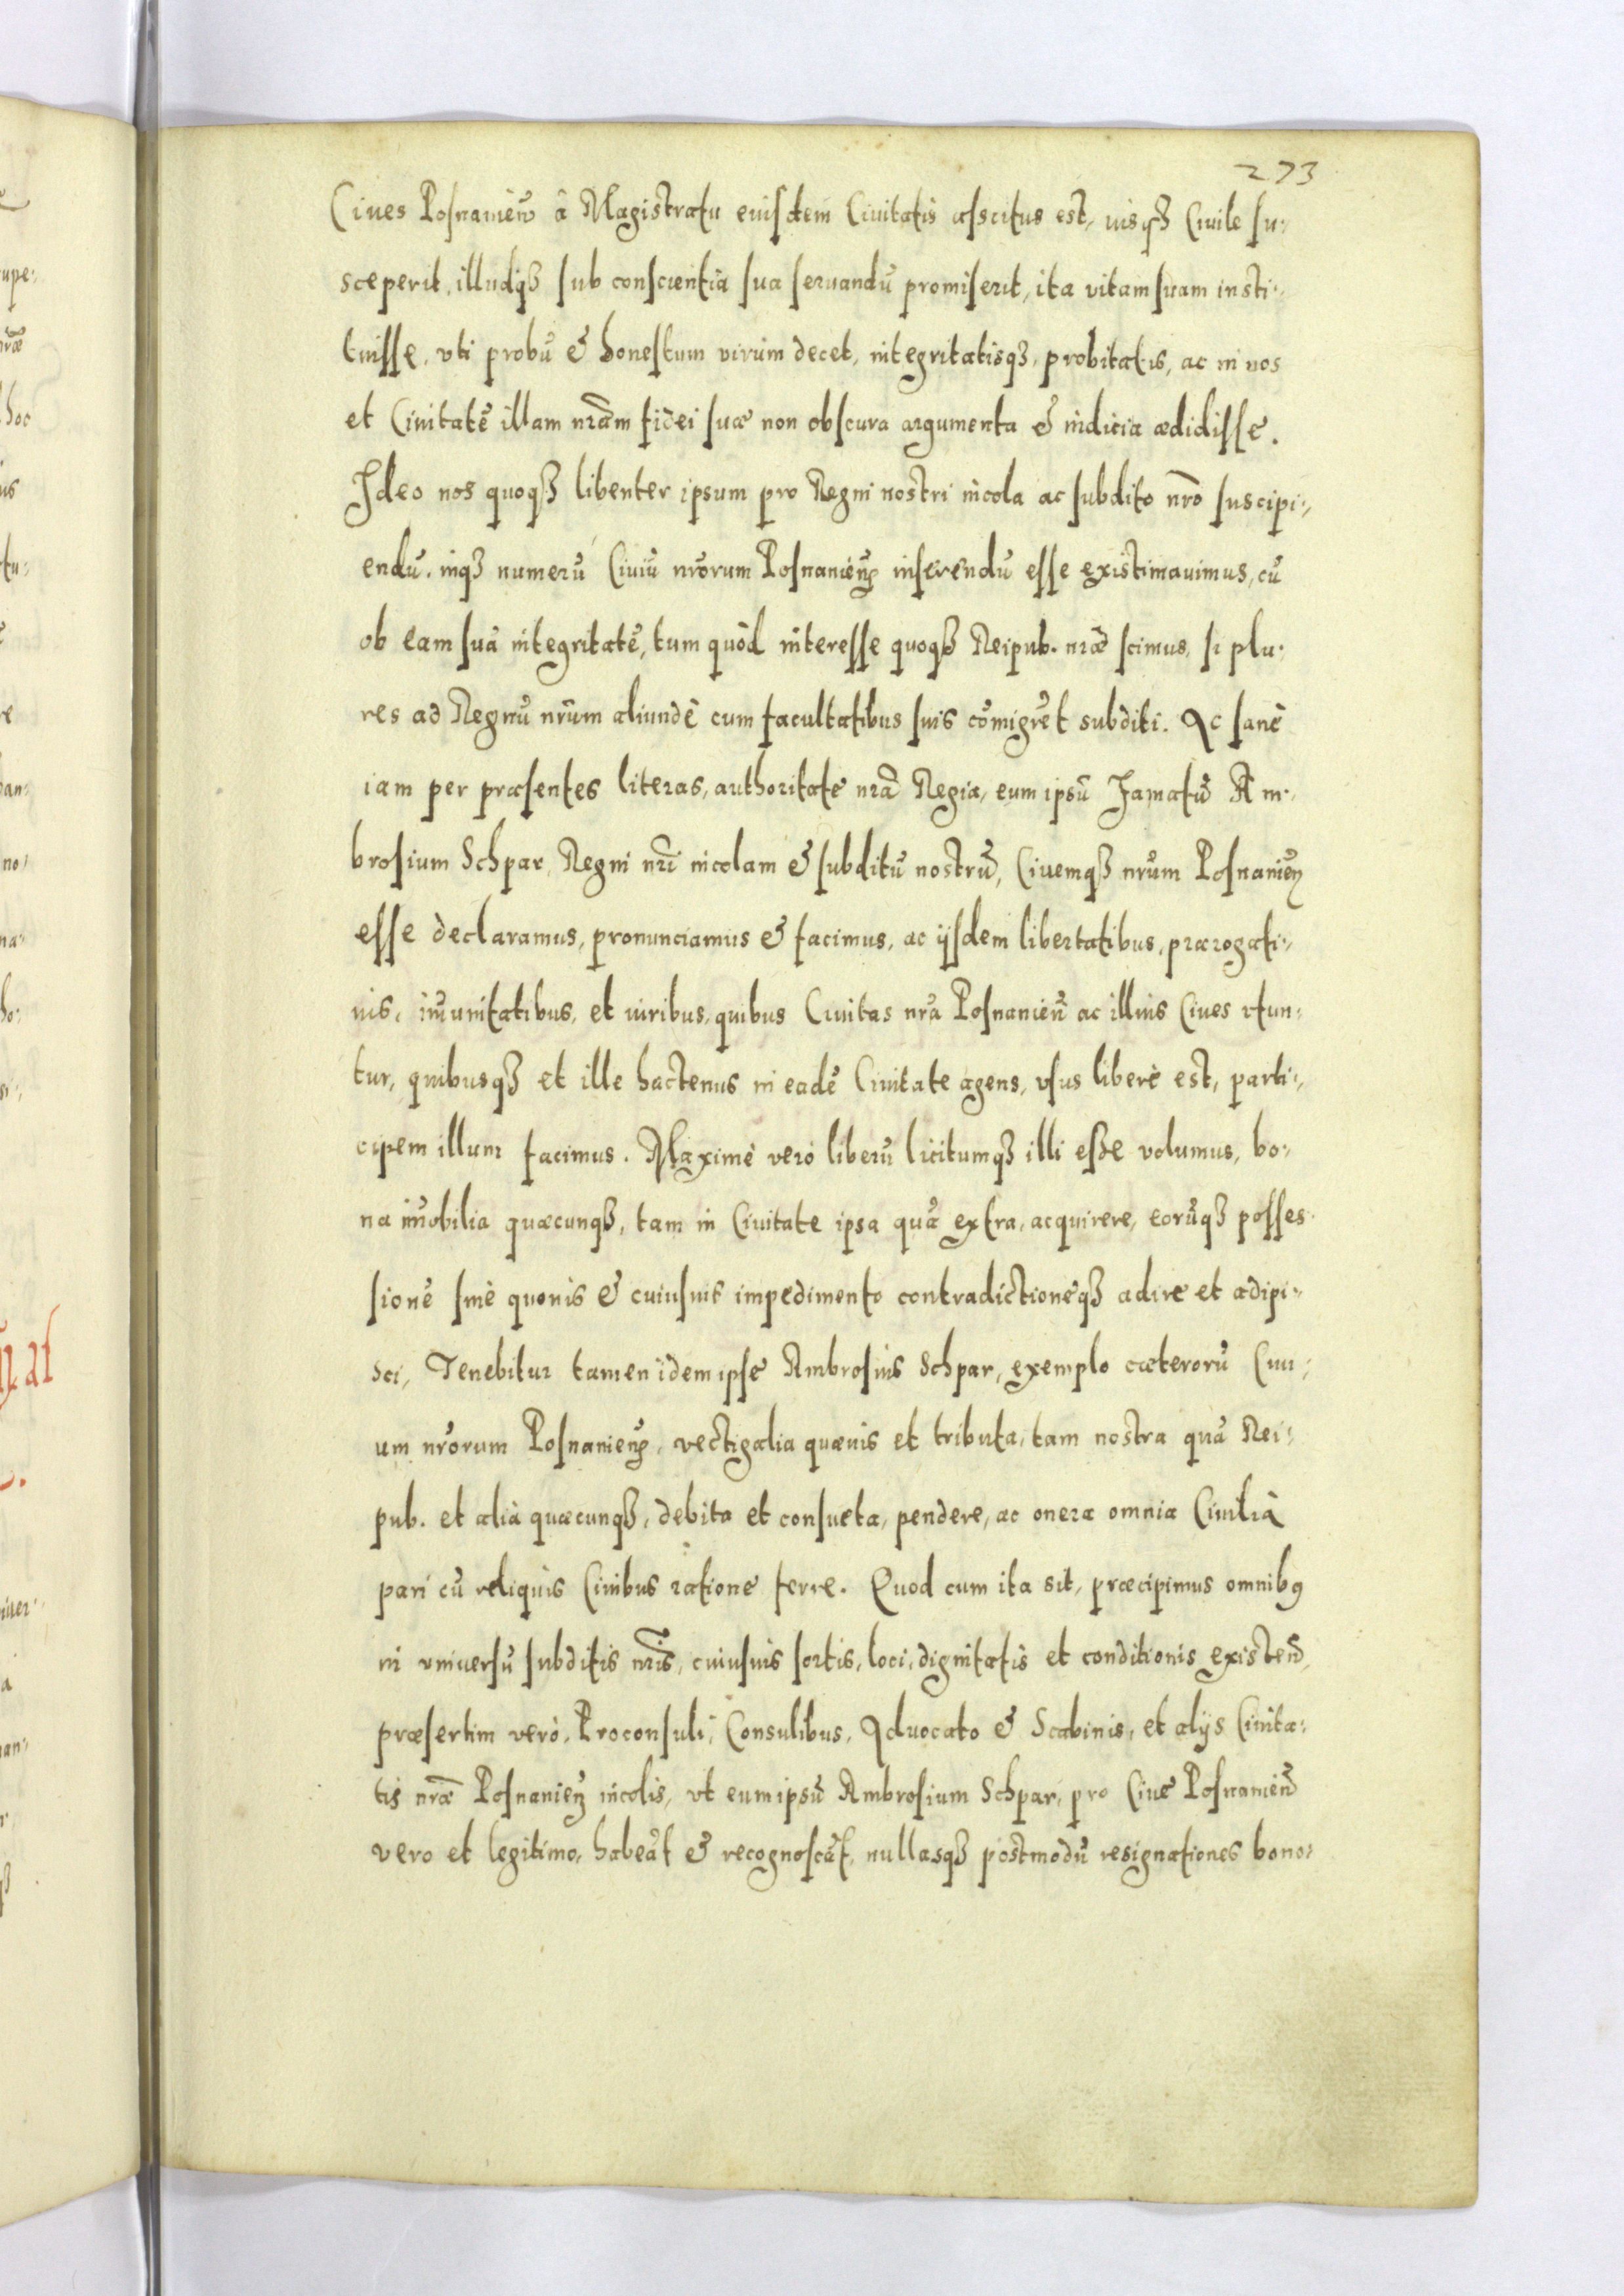 273
Ciues Posnanień â Magistratu eiusdem Ciuitatis ascitus est, iusq₃ Ciuile su-
sceperit, illudq₃ sub conscientia sua seruandū promiserit, ita vitam suam insti-
tuisse, vti probū & honestum virum decet, integritatisq₃, probitatis, ac in nos
et Ciuitatē illam nr̄am fidei suæ non obscura argumenta & indicia ædidisse.
Ideo nos quoq₃ libenter ipsum pro Regni nostri incola ac subdito nr̄o suscipi-
endū, inq₃ numerū Ciuiū nr̄orum Posnanien̄ inserendū esse existimauimus, cū
ob eam suā integritatē, tum quòd interesse quoq₃ Reipub. nr̄æ scimus, si plu-
res ad Regnū nr̄um aliundè cum facultatibus suis cōmigrēt subditi. Ac sanè
iam per præsentes literas, authoritate nr̄a Regia, eum ipsū Famatū Am-
brosium Schpar, Regni nr̄i incolam & subditū nostrū, Ciuemq₃ nr̄um Posnanień
esse declaramus, pronunciamus & facimus, ac ijsdem libertatibus, prærogati-
uis, im̄unitatibus, et iuribus, quibus Ciuitas nr̄a Posnanień ac illius Ciues vtun-
tur, quibusq₃ et ille hactenus in eadē Ciuitate agens, vsus liberè est, parti-
cipem illum facimus. Maximè verò liberū licitumq₃ illi esse volumus, bo-
na im̄obilia quæcunq₃, tam in Ciuitate ipsa quā extra, acquirere, eorūq₃ posses-
sionē sinè quouis & cuiusuis impedimento contradictioneq₃ adire et ædipi-
sci, Tenebitur tamen idem ipse Ambrosius Schpar, exemplo cæterorū Ciui-
um nr̄orum Posnanien̄, vectigalia quæuis et tributa, tam nostra quā Rei-
pub. et alia quæcunq₃, debita et consueta, pendere, ac onera omnia Ciuilia
pari cū reliquis Ciuibus ratione ferre. Quod cum ita sit, præcipimus omnibꝰ
in vniuersū subditis nr̄is, cuiusuis sortis, loci, dignitatis et conditionis existen̄,
præsertim verò, Proconsuli, Consulibus, Aduocato & Scabinis, et alijs Ciuita-
tis nr̄æ Posnanień incolis, vt eum ipsū Ambrosium Schpar, pro Ciue Posnanień
vero et legitimo, habeāt & recognoscāt, nullasq₃ postmodū resignationes bono-